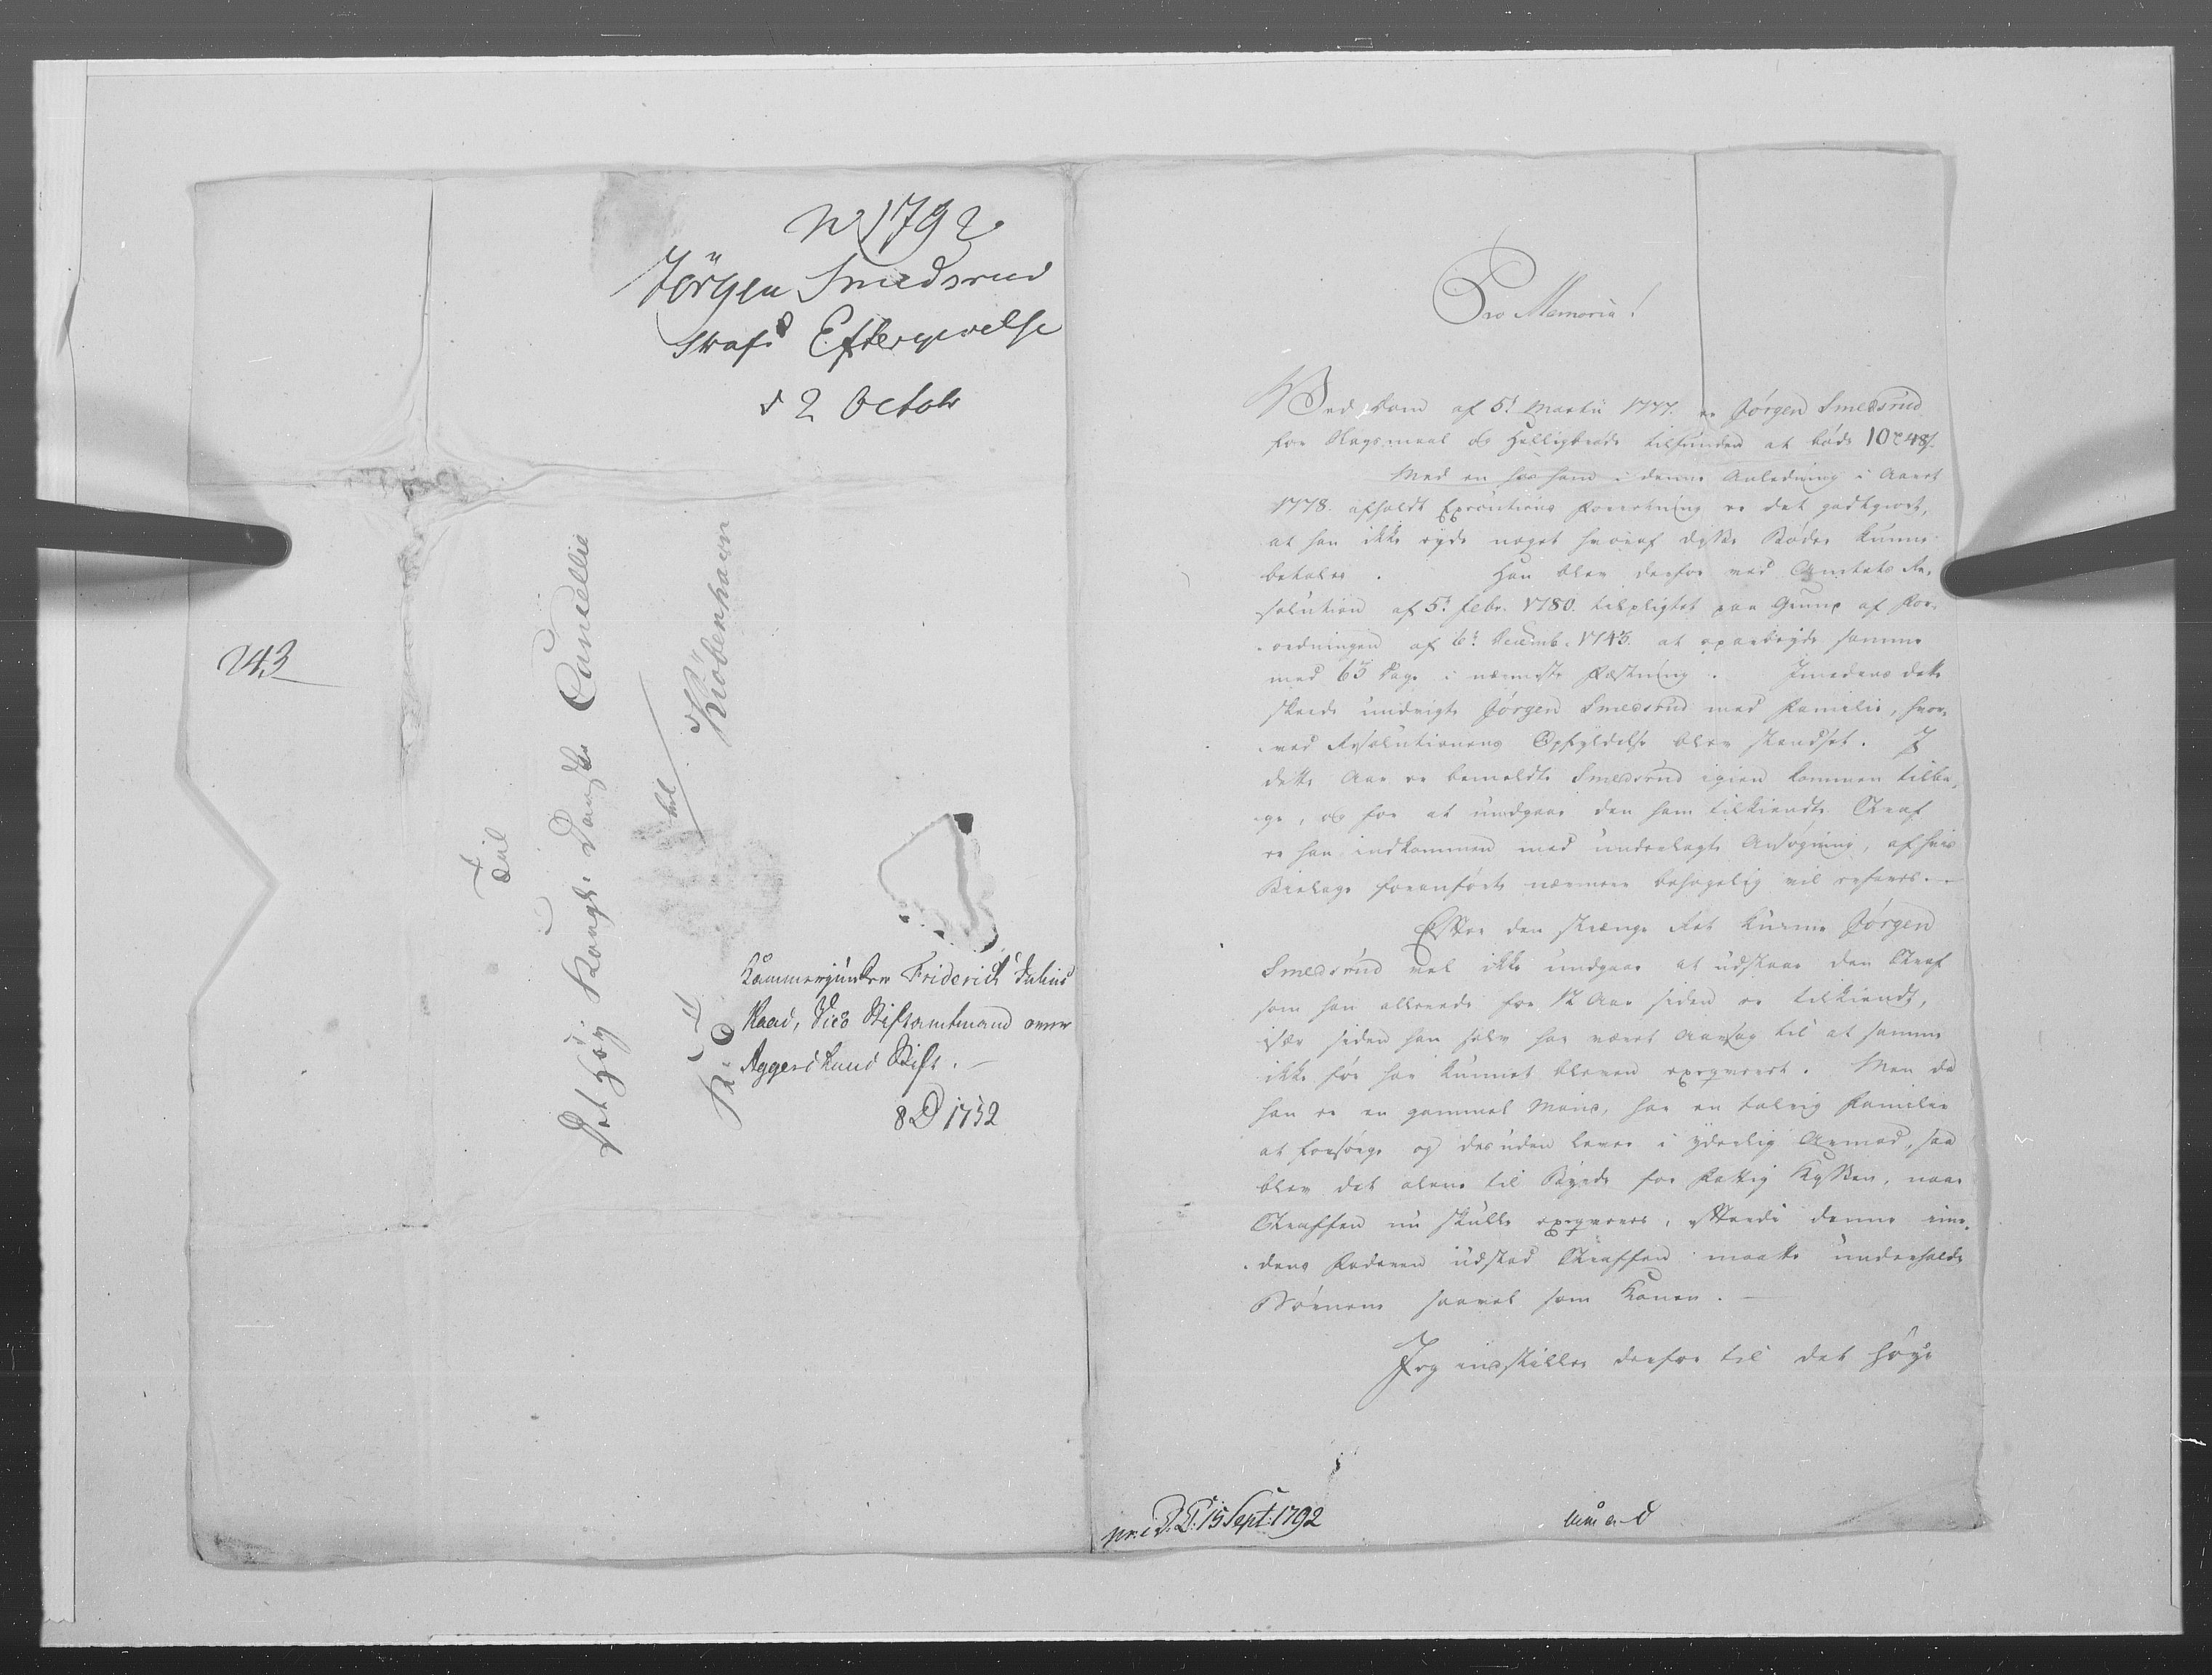 No 1792
Jörgen Smedsrud
Strafs Eftergivelse
d 2 Octobr
243
Til
Det Høy Kongl. Danske Cancellie
i
Kiøbenhavn
K: T
Kammerjunker Friderich Julius
Kaas, Vice Stiftamtmand over
Aggershuus Stift.
8 D 1752
Pro Memoria!
Ved Dom af 5t Martii 1777. er Jørgen Smedsrud
for Slagsmaal og Helligbrøde tilfunden at bøde 10 48 s.
Med en hos ham i denne Anledning i Aaret
1778. afholdt Executions Forretning er det godtgiort,
at han ikke eyde noget hvoraf disse Bøder kunne
betales. Han blev derfor ved Amtets Re-
solution af 5t Febr. 1780. tilpligtet paa Grund af For-
-ordningen af 6t Decemb. 1743. at exarbeyde samme
med 65 Dage i nærmeste Fæstning. Imedens dette
skeede undvigte Jørgen Smedsrud med Familie, hvor-
-ved Resolutionens Opfyldelse blev standset. I
dette Aar er bemeldte Smedsrud igien kommen tilba-
-ge, og for at undgaae den ham tilkiendte Straf
er han indkommen med underlagte Ansøgning, af hvis
Bielage foranførte nærmere behagelig vil erfares.
Efter den strænge Ret kunne Jørgen
Smedsrud vel ikke undgaae at udstaae den Straf
som han allerede for 12 Aar siden er tilkiendt,
især siden han selv har været Aarsag til at samme
ikke før har kunnet bleven exeqveret. Men da
han er en gammel Mand, har en talrig Familie
at forsørge og desuden lever i yderlig Armod, saa
blev det alene til Byrde for Fattig Kassen, naar
Straffen nu skulle exeqveres, efterdi denne ime-
-dens Faderen udstod Straffen maatte underholde
Børnene saavel som Konen.
Jeg indstiller derfor til det høye
pr. i D. C. 15 Sept: 1792